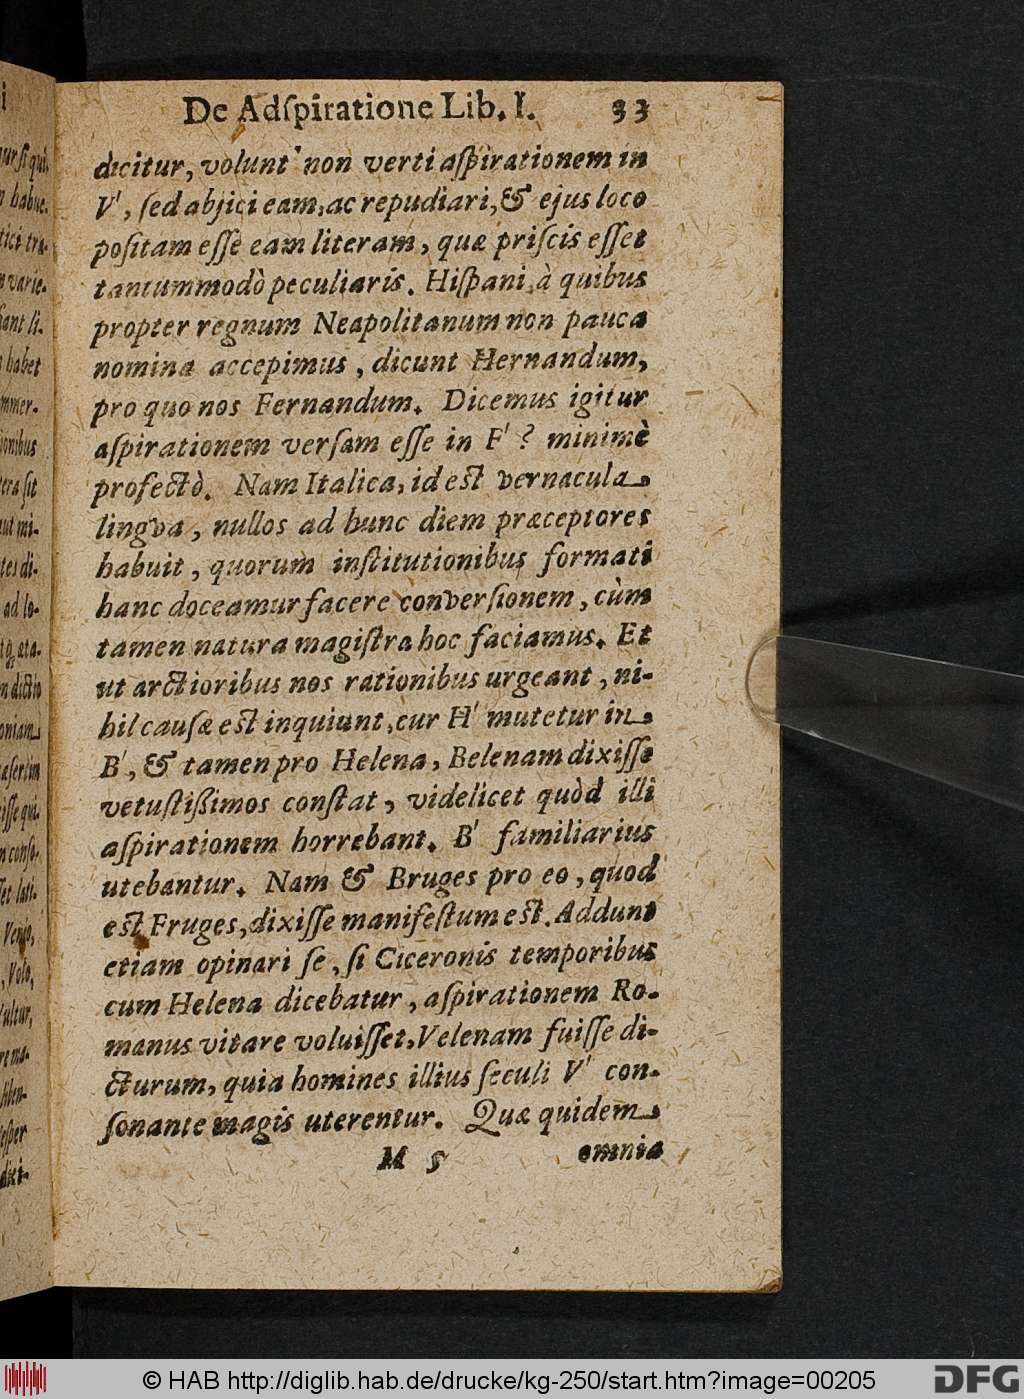 De Adſpiratione Lib. I. 33
dicitur, volunt non verti aſpirationem in
V', ſed abjici eam, ac repudiari, & ejus loco
poſitam eſſe eam literam, quæ priſcis eſſet
tantummodò peculiaris. Hiſpani, à quibus
propter regnum Neapolitanum non pauca
nomina accepimus, dicunt Hernandum,
pro quo nos Fernandum. Dicemus igitur
aſpirationem verſam eſſe in F'? minimè
profectò. Nam Italica, id eſt vernacula
lingva, nullos ad hunc diem præceptores
habuit, quorum inſtitutionibus formati
hanc doceamur facere converſionem, cùm
tamen natura magiſtra hoc faciamus. Et
ut arctioribus nos rationibus urgeant, ni-
hil cauſæ eſt inquiunt, cur H' mutetur in
B', & tamen pro Helena, Belenam dixiſſe
vetuſtißimos conſtat, videlicet quòd illi
aſpirationem horrebant. B' familiarius
utebantur. Nam & Bruges pro eo, quod
eſt Fruges, dixiſſe manifeſtum eſt. Addunt
etiam opinari ſe, ſi Ciceronis temporibus
cum Helena dicebatur, aſpirationem Ro-
manus vitare voluiſſet, Velenam fuiſſe di-
cturum, quia homines illius ſeculi V' con-
ſonante magis uterentur. Quæ quidem
M 5 omnia
© HAB http://diglib.hab.de/drucke/kg-250/start.htm?image=00205
DFG